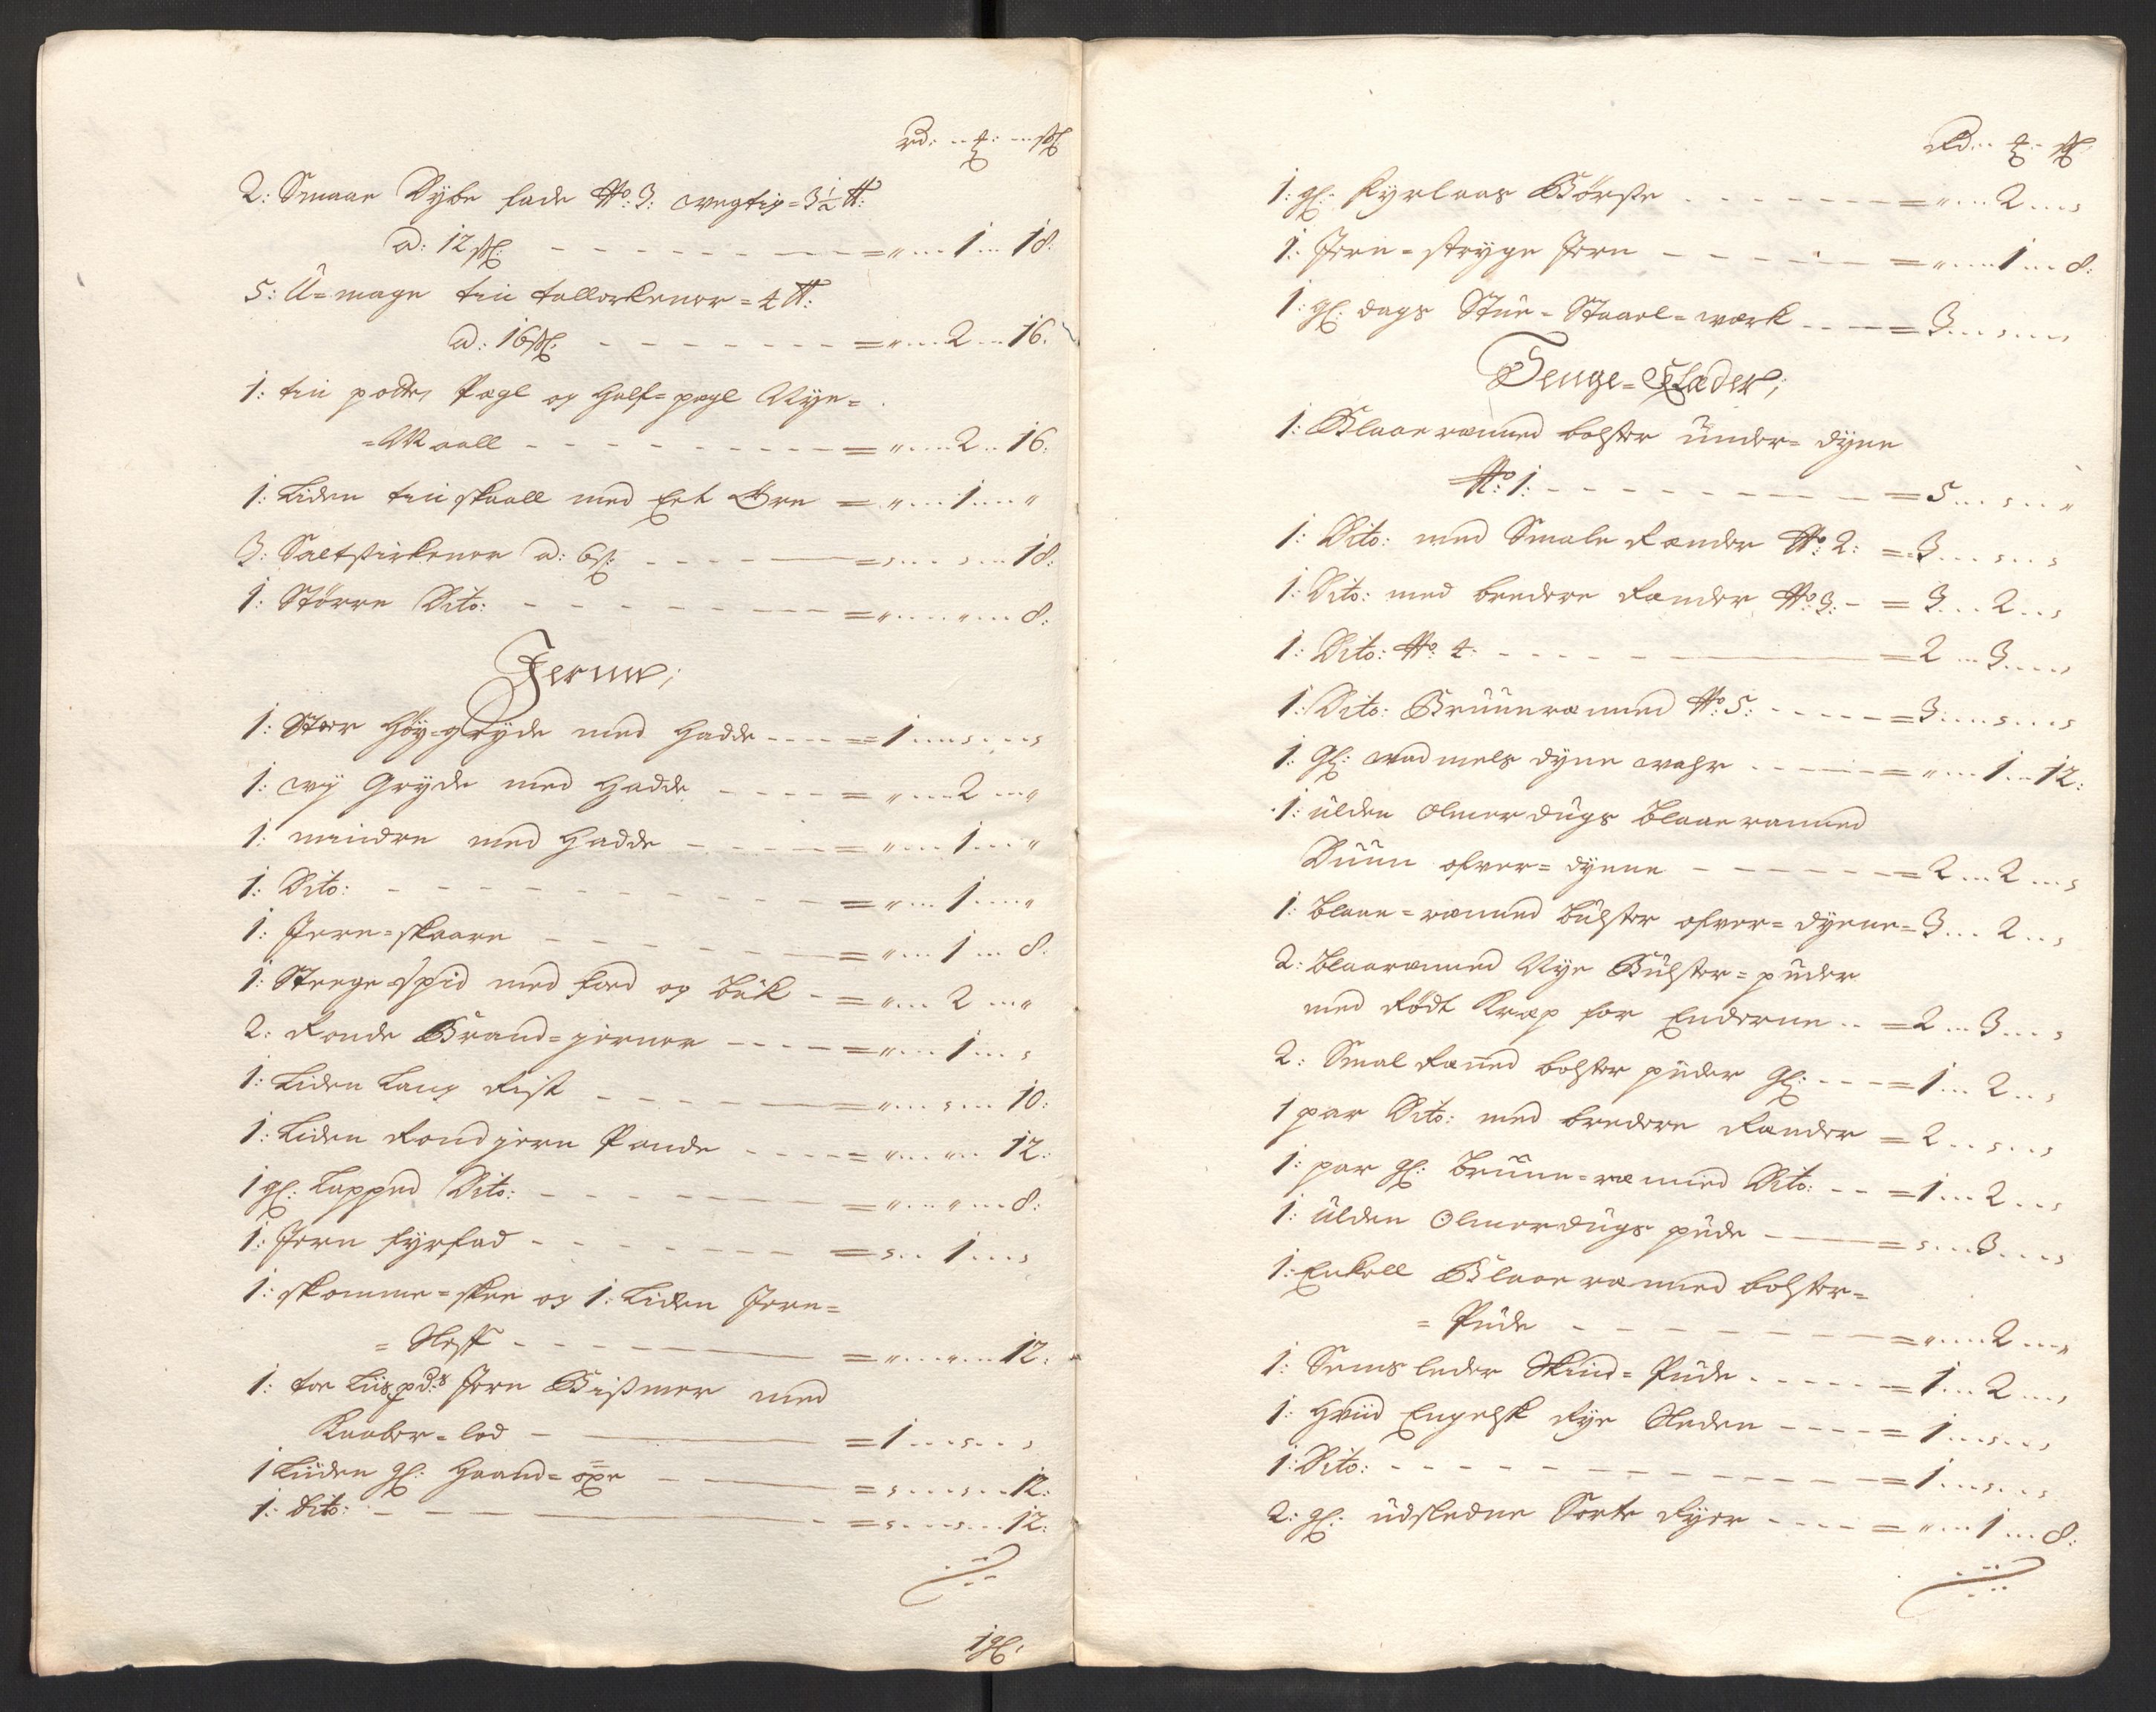 rd: .. ꝣ: ... ß
2: Smaae Dybe fade No: 3: wegtig = 3½ ℔:
a: 12 ß: - - - - = „ ... 1 ... 18:
5: U=mage tin tallerkener = 4 ℔:
a: 16 ß: - - - - = „ ... 2 ... 16:
1: tin potte, Pægl og Half=pægl Nye=
=Maall - - - - = „ ... 2 .. 16:
1: Liden tin skaall med Eet Øre = „ ... 1 ... „
3: Saltzirkener a: 6 ß: - - - - = „ ... „ ... 18:
1: Större Dito: - - - - = „ ... „ ... 8:
Jernn;
1: Stoer Höy=gryde med Hadde - - - - = 1 ... „ ... „
1: wy Gryde med Hadde - - - - = „ ... 2 ... „
1: mindre med Hadde - - - - = „ ... 1 ... „
1: Dito: - - - - = „ ... 1 ... „
1: Jern=skaare - - - - = „ ... 1 ... 8.
1: Steege=spid med food og buk - = „ ... 2 ... „
2: Ronde Brand=jerner - - - - = „ ... 1 ... „
1: Liden Lang Rist - - - - = „ ... „ ... 10:
1: Liden Rond jern Pande - - - - = „ ... „ .. 12:
1 gl: Lapped Dito: - - - - = „ ... „ ... 8:
1: Jern fyrfad - - - - = „ .. 1 ... „
1: skomme=skee og 1: Liden Jern=
= Sleff - - - - = „ ... „ ... 12:
1: toe Liispd:s Jern Bißmer med
Kaaber=lod - - - - = 1 ... „ .. „
1 Liiden gl: Haand=öxe - - - - = „ ... „ ... 12:
1: Dito: - - - - = „ ... „ ... 12:
1 gl:
Rd: .. ꝣ: .. ß
1: gl: Fyrlaas Börße - - - - = „ ... 2 ... „
1: Jern=stryge Jern - - - - = „ ... 1 ... 8:
1: gl: dags Stue=Staael=werk - - - = 3 ... „ ... „
Senge=Klæder;
1: Blaae ranned bolster under=dyne
No: 1: - - - - = 5 ... „ .. „
1: Dito: med Smale Rander No: 2: = 3 ... „ .. „
1: Dito: med bredere Rander No: 3: - = 3 ... 2 .. „
1: Dito: No: 4: - - - - = 2 ... 3 ... „
1: Dito: Bruunranned No: 5: - - - - = 3 ... „ ... „
1: gl: wadmels dyne wahr - - - - = „ ... 1 .. 12:
1: ulden olmerdugs blaae ranned
Duun ofver=dyene - - - - = 2 ... 2 ... „
1: blaae=ranned bulster ofver=dyene = 3 ... 2 .. „
2: blaaranned Nye Bulster=puder
med Rödt Krap for Enderne .. = 2 ... 3 ... „
2: Smal Raned bolster puder gl: - - - = 1 ... 2 .. „
1 par Dito: med bredere Rander = 2 ... „ .. „
1: par gl: bruun=ranned Dito: - - = 1 ... 2 ... „
1: ulden Olmerdugs pude - - - = „ ... 3 ... „
1: Enkell Blaae ranned bolster=
= Pude - - - - = „ ... 2 ... „
1: Semsleder Skind=Pude - - - - = 1 ... 2 ... „
1: Hviid Engelsk Rye Sleden - - - - = 1 ... „ .. „
1: Dito: - - - - = 1 ... „ .. „
2: gl: udsledne Sorte Ryer - - - - = „ ... 1 ... 8: